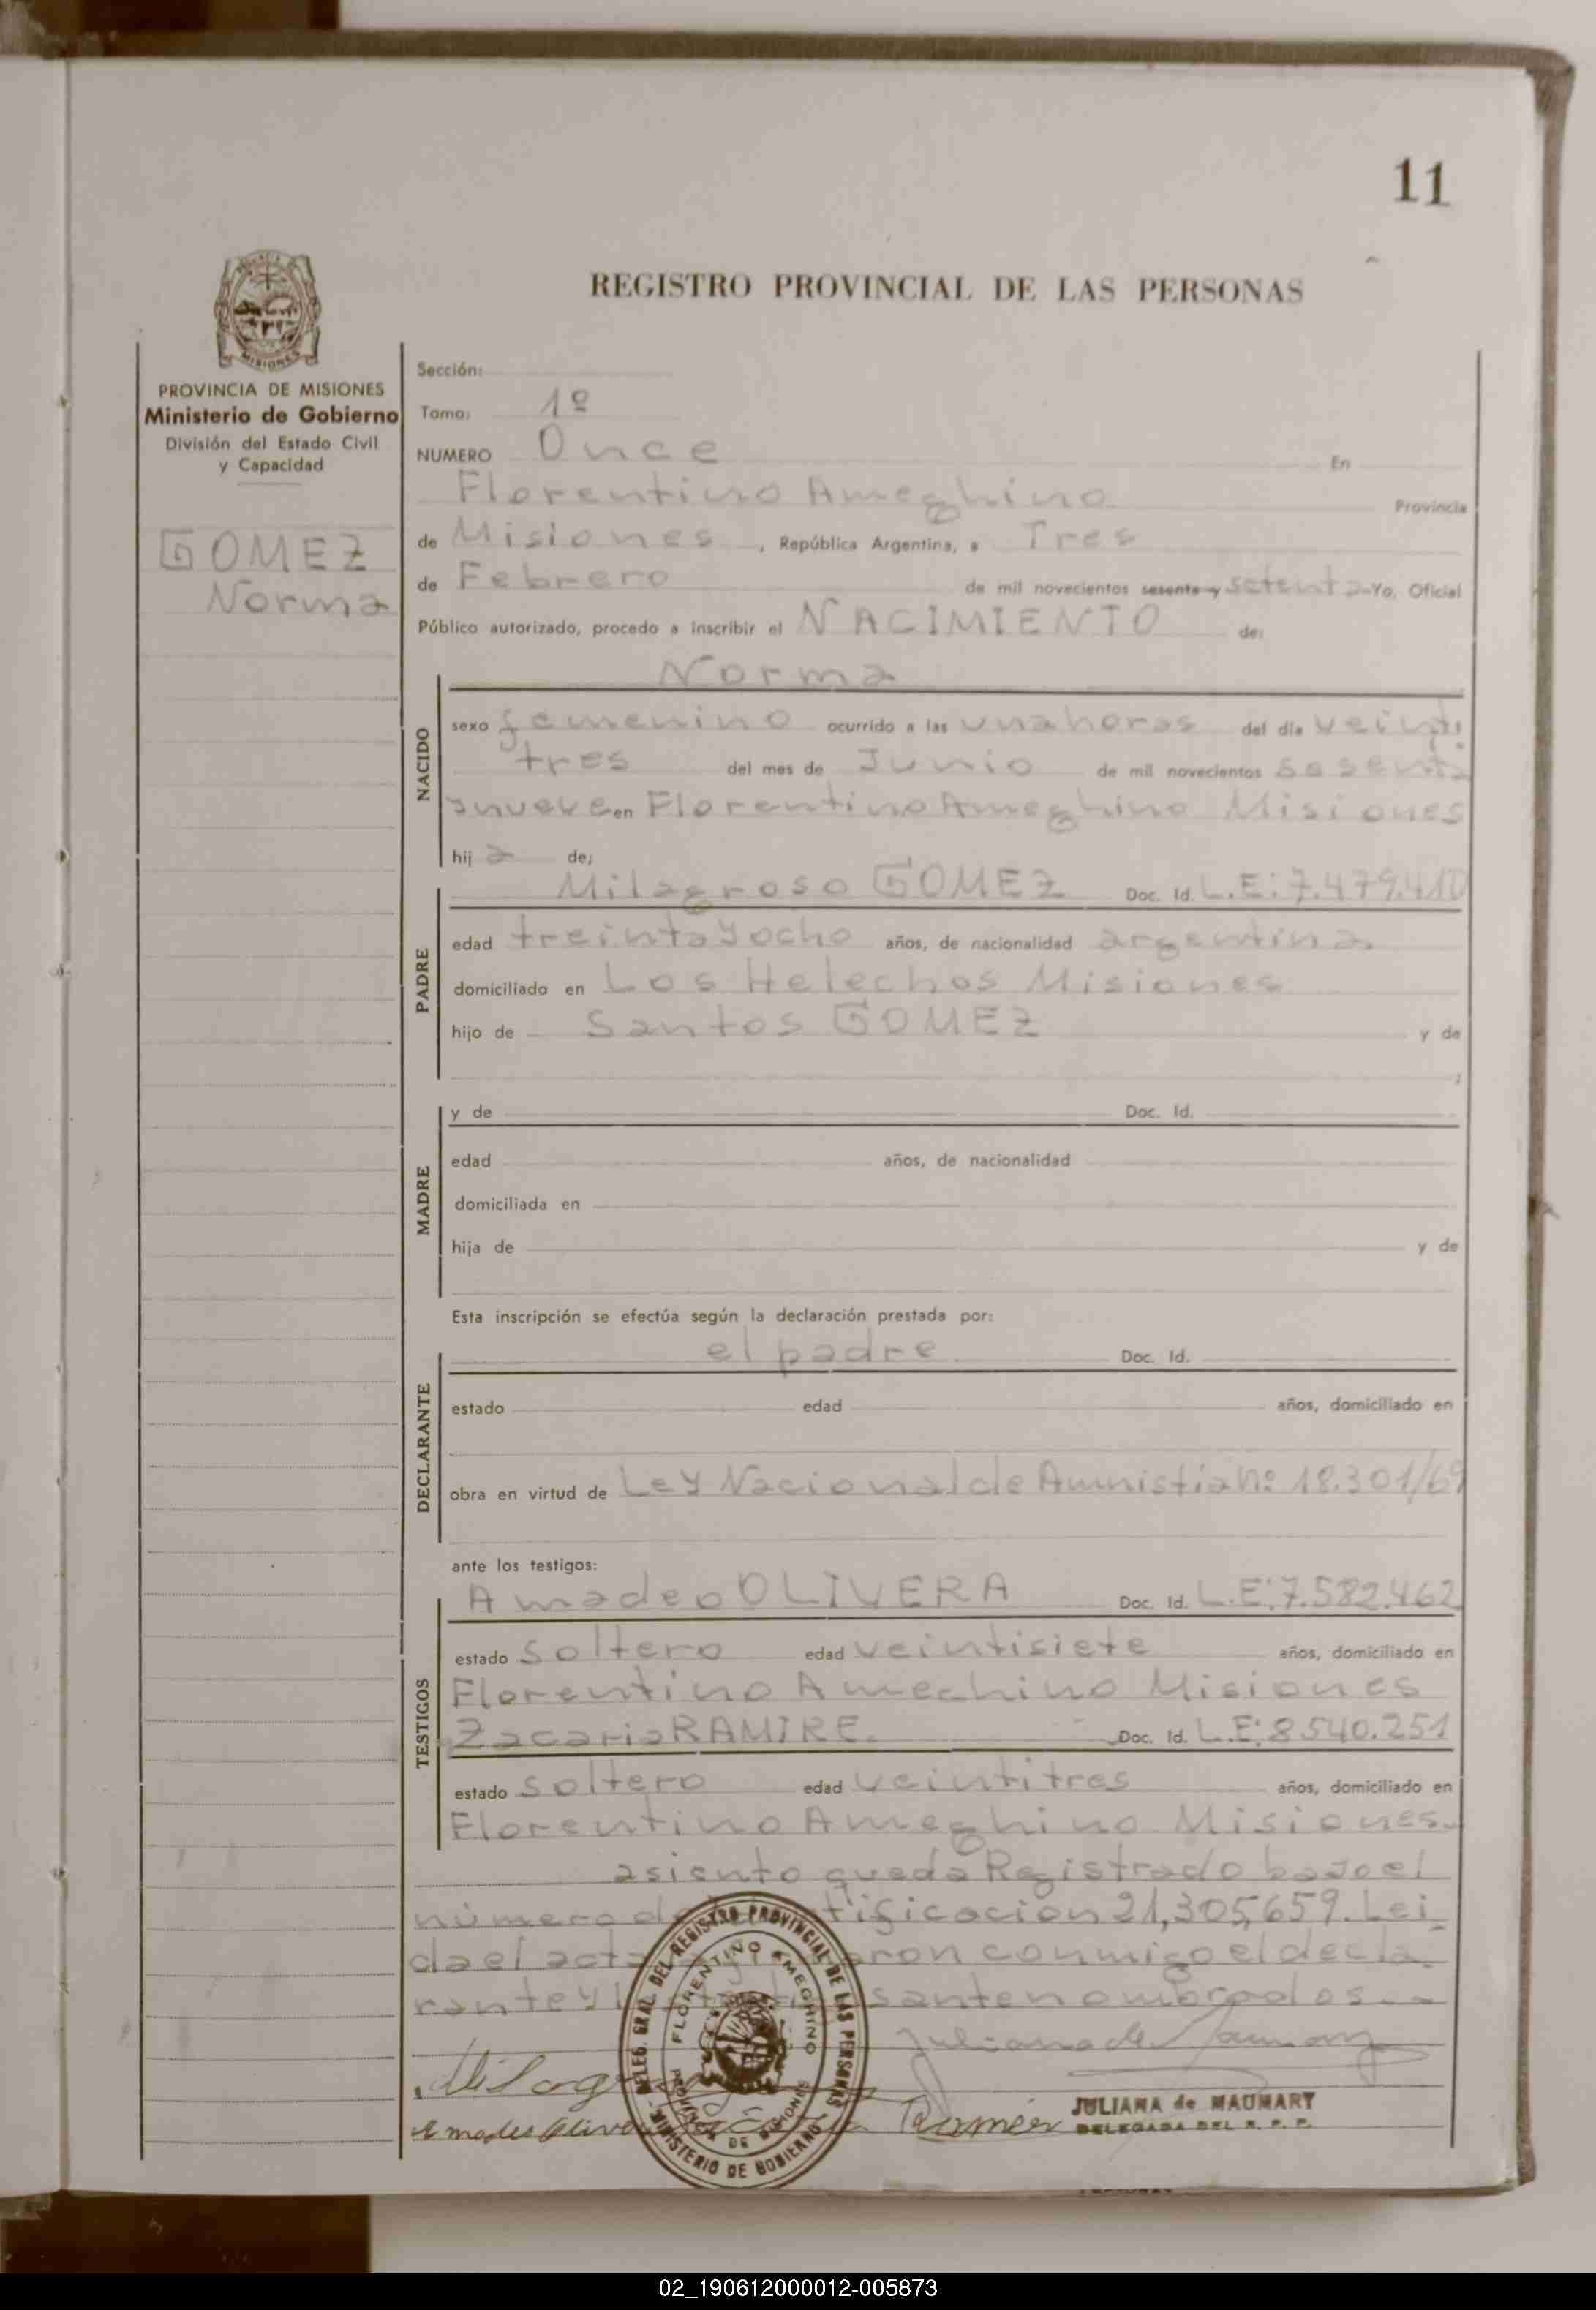 11
REGISTRO PROVINCIAL DE LAS PERSONAS
MISIONES
PROVINCIA DE MISIONES
Ministerio de Gobierno
División del Estado Civil
y Capacidad
GOMEZ
Norma
Sección:
Tomo: 1º
NUMERO Once En
Florentino Ameghino Provincia
de Misiones, República Argentina, a Tres
de Febrero de mil novecientos sesenta y setenta Yo, Oficial
Público autorizado, procedo a inscribir el NACIMIENTO de:
Norma
NACIDO
sexo femenino ocurrido a las una horas del día veinti
tres del mes de Junio de mil novecientos sesenta
y nueve en Florentino Ameghino Misiones
hija de:
PADRE
Milagroso GOMEZ Doc. Id. L.E: 7.479.410
edad treinta y ocho años, de nacionalidad argentina
domiciliado en Los Helechos Misiones
hijo de Santos GOMEZ y de
;
MADRE
y de Doc. Id.
edad años, de nacionalidad
domiciliada en
hija de y de
Esta inscripción se efectúa según la declaración prestada por:
DECLARANTE
el padre Doc. Id.
estado edad años, domiciliado en
obra en virtud de Ley Nacional de Amnistia Nº 18.301/69
ante los testigos:
TESTIGOS
Amadeo OLIVERA Doc. Id. L.E: 7.582.462
estado soltero edad veintisiete años, domiciliado en
Florentino Ameghino Misiones
Zacaria RAMIRE. Doc. Id. L.E: 8.540.251
estado soltero edad veintitres años, domiciliado en
Florentino Ameghino Misiones.
asiento queda Registrado bajo el
número tificación 21,305,659. Lei
da el acta ron conmigo el decla
rante y santenombrados
DELEG. GRAL. DEL REGISTRO PROVINCIAL DE LAS PERSONAS
FLORENTINO AMEGHINO
PROVINCIA DE MISIONES
MINISTERIO DE GOBIERNO
Juliana de
JULIANA de MAUMARY
DELEGADA DEL R. P. P.
02_190612000012-005873